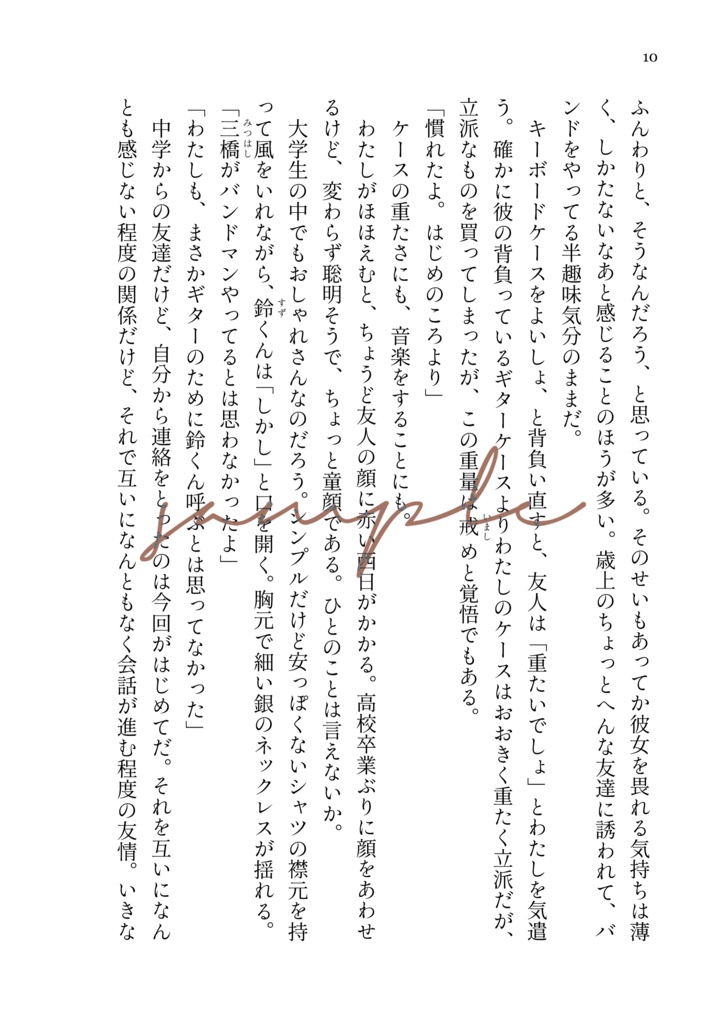 10
ふんわりと、そうなんだろう、と思っている。そのせいもあってか彼女を畏れる気持ちは薄
く、しかたないなあと感じることのほうが多い。歳上のちょっとへんな友達に誘われて、バ
ンドをやってる半趣味気分のままだ。
キーボードケースをよいしょ、と背負い直すと、友人は「重たいでしょ」とわたしを気遣
う。確かに彼の背負っているギターケースよりわたしのケースはおおきく重たく立派だが、
立派なものを買ってしまったが、この重量は戒めと覚悟でもある。
「慣れたよ。はじめのころより」
ケースの重たさにも、音楽をすることにも。
わたしがほほえむと、ちょうど友人の顔に赤い西日がかかる。高校卒業ぶりに顔をあわせ
るけど、変わらず聡明そうで、ちょっと童顔である。ひとのことは言えないか。
大学生の中でもおしゃれさんなのだろう。シンプルだけど安っぽくないシャツの襟元を持
って風をいれながら、鈴くんは「しかし」と口を開く。胸元で細い銀のネックレスが揺れる。
「三橋がバンドマンやってるとは思わなかったよ」
「わたしも、まさかギターのために鈴くん呼ぶとは思ってなかった」
中学からの友達だけど、自分から連絡をとったのは今回がはじめてだ。それを互いになん
とも感じない程度の関係だけど、それで互いになんともなく会話が進む程度の友情。いきな
いまし
すず
みつはし
sample